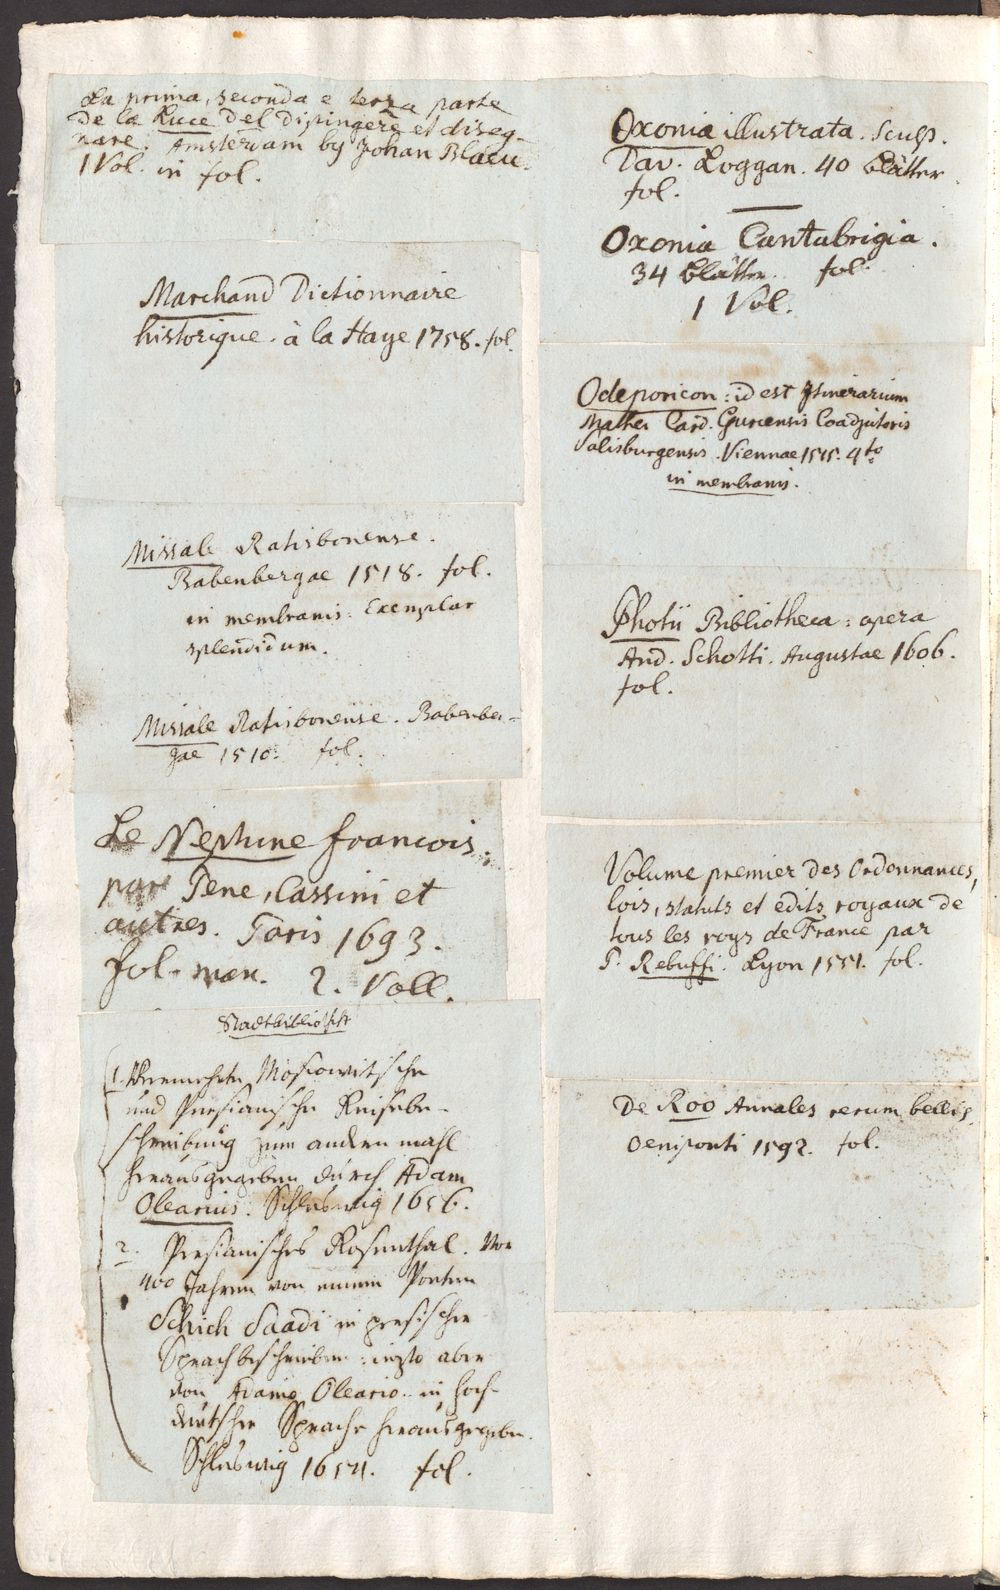 La prima, seconda e terza parte
De la Luce Del Dipingere et diseg-
nare. Amsterdam by Johan Blaeu.
1 Vol. in fol.
Marchand Dictionnaire
historique. à la Haye 1758. fol.
Missale Ratisbonense.
Babenbergae 1518. fol.
in membranis. Exemplar
splendidum.
Missale Ratisbonense. Babenber-
gae 1510. fol.
Le Neptune francois.
par Pene, Cassini et
autres. Paris 1693.
fol. max. 2. Voll.
Stadtbibliothek
1. Vermehrte Moscowitische
und Persianische Reisebe-
schreibung zum andern mahl
herausgegeben durch Adam
Olearius. Schleswig 1656.
2. Persianisches Rosenthal. Vor
400 Jahren von einem Poeten
Schich Saadi in persischer
Sprach beschrieben: ietzto aber
von Adamo Oleario in hoch-
deutscher Sprache herausgegeben.
Schleswig 1654. fol.
Oxonia illustrata. Sculp.
Dav. Loggan. 40 Blätter
fol.
Oxonia Cantabrigia.
34 Blätter. fol.
1 Vol.
Odeporicon: id est Itinerarium
Mathei Card. Gurcensis Coadjutoris
Salisburgensis. Viennae 1515. 4to
in membranis.
Photii Bibliotheca: opera
And. Schotti. Augustae 1606.
fol.
Volume premier des Ordonnances,
lois, statuts et édits royaux de
tous les roys de France par
P. Rebuffi. Lyon 1551. fol.
De Roo Annales rerum belli.
Oeniponti 1592. fol.